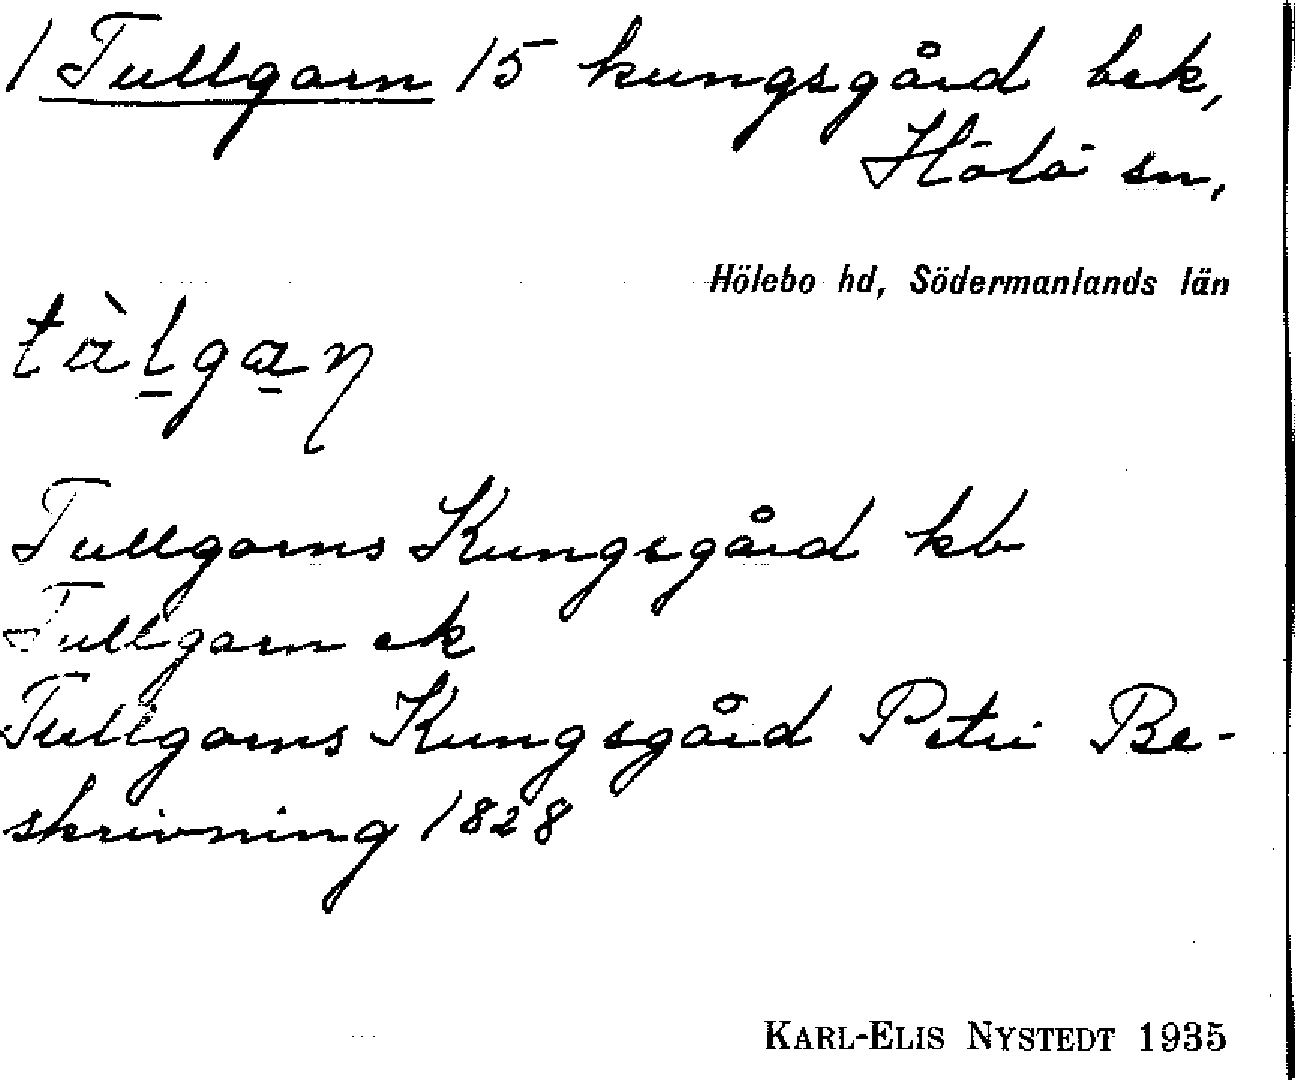 1 Tullgarn 15 kungsgård bek,
Hölö sn,
Hölebo hd, Södermanlands län
tàlgaṉ
Tullgarns Kungsgård kb
Tullgarn ek
Tullgarns Kungsgård Petri Be-
skrivning 1828
KARL-ELIS NYSTEDT 1935